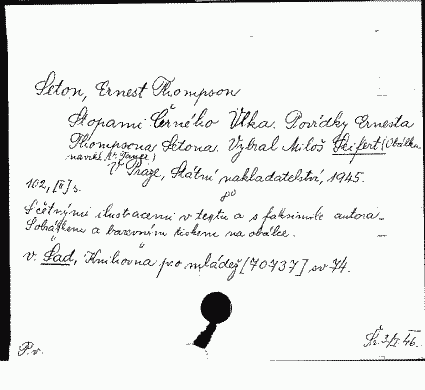 Seton, Ernest Thompson
Stopami Černého Vlka. Povídky Ernesta
Thompsona Setona. Vybral Miloš Seifert (Obálku
navrhl
V Praze, Státní nakladatelství, 1945.
102, [II] s.
S četnými ilustracemi v textu a s faksimile autora
a barevným tiskem na obálce.
v. Sad, Knihovna pro mládež [70737] sv 74.
P.v.
46.